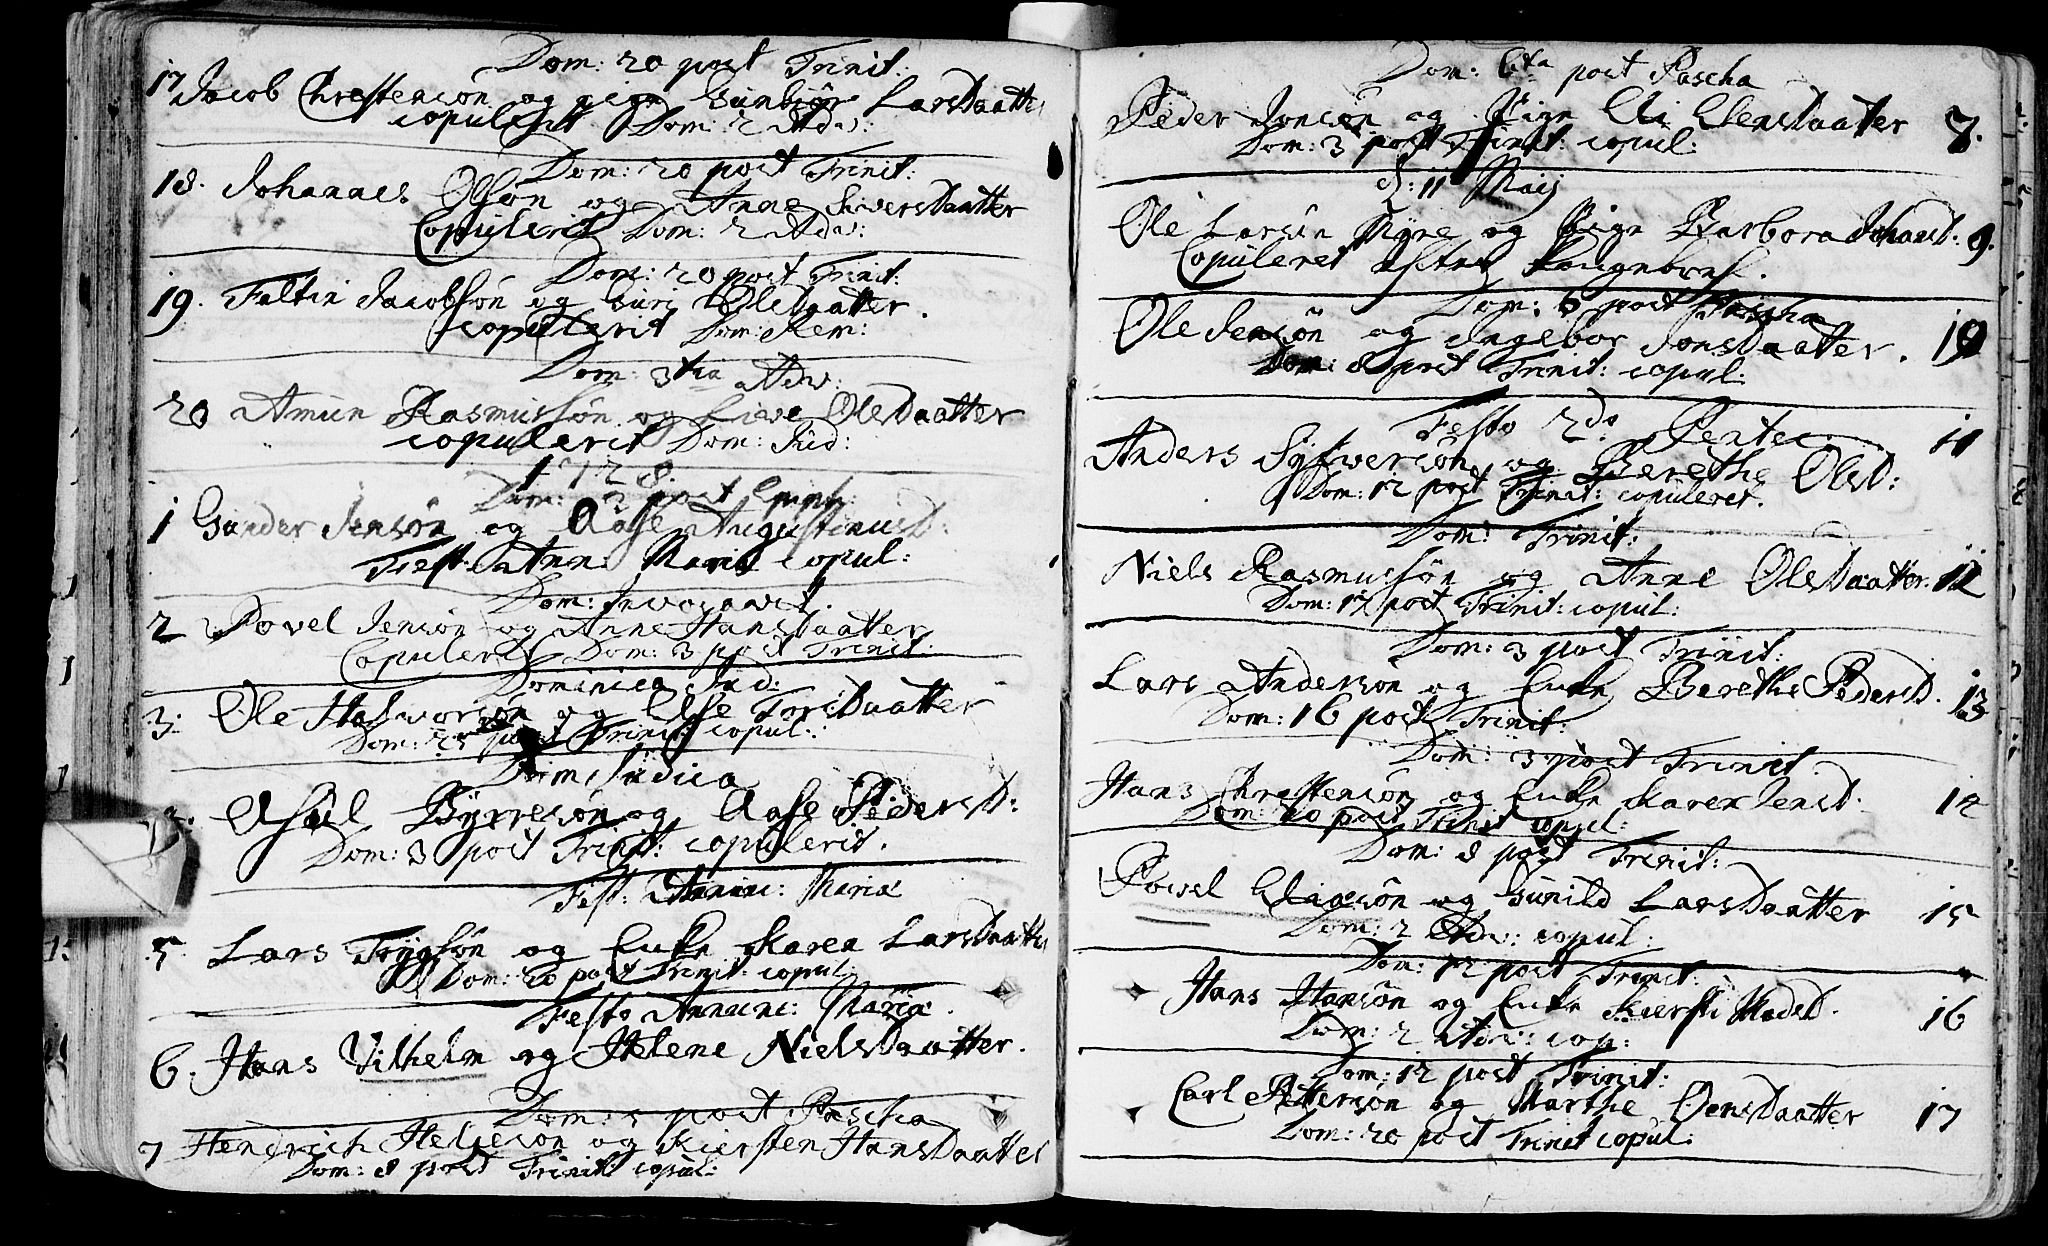 Dom: 20 post Trinit:
17 Jacob Christensøn og pige Gunbiør Larsdaatter
copulerit Dom: 2 Adv:
Dom: 20 post Trinit:
18. Johannes Olsøn og Anne Siversdaatter
Copulerit Dom: 2 Adv:
Dom: 20 post Trinit:
19. Faltin Jacobsøn og Guri Olsdaatter.
copulerit Dom: Rem:
Dom: 3tia Adv:
20 Amun Rasmussøn og Live Olesdaatter
copulerit Dom: Jud:
1728.
Dom: 2 post Epiph:
1 Gunder Jensøn og Aase Augustinusd:
Fest: Ann: Mariæ copul:
Dom: Invocavit.
2 Povel Jensøn og Anne Hansdaatter
Copulerit Dom: 3 post Trinit:
Dominica Jud:
3: Ole Halvorsøn og Else Toresdaatter
Dom: 25 post Trinit: copul:
Dom: Judica
Aslil Byrresøn og Aase Pedersd:
Dom: 3 post Trinit: copulerit.
Fest: Annunc: Mariæ
5. Lars Trygsøn og Enke Karen Larsdaatter
Dom: 20 post Trinit: copul:
Festo Annunc: Mariæ.
6. Hans Vilhelm og Helene Nielsdaatter.
Dom: 5 post Pascha
7 Hendrich Helgesøn og Kiersten Hansdaatter
Dom: 8 post Trinit: copul:
Dom: 6ta post Pascha
Peder Jonsøn og Pige Eli Elensdaatter 7.
Dom: 3 post Trinit: copul:
d: 11 Maij
Ole Larsøn Myre og Pige Barbora Johansd: 9.
Copuleret efter Kongebref.
Dom: 6 post Pascha
Ole Jensøn og Ingebor Jonsdaatter. 10
Dom: 8 post Trinit: copul:
Festo 2do Pentec:
Anders Syfwersøn og Berethe Olsd: 11
Dom: 12 post Trinit: copuleret.
Dom: Trinit:
Niels Rasmussøn og Anne Olesdaatter. 12
Dom: 17 post Trinit: copul:
Dom: 3 post Trinit:
Lars Andersøn og Enke Berethe Pedersd. 13
Dom: 16 post Trinit:
Dom: 3 post Trinit.
Hans Christensøn og Enke Karen Jensd. 14
Dom: 20 post Trinit copul:
Dom: 8 post Trinit:
Povel Eliæsøn og Gunild Larsdaatter 15
Dom: 2 Adv: copul:
Dom: 12 post Trinit:
Hans Hansøn og Enke Kiersti Madsd. 16
Dom: 2 Adv: cop:
Dom: 12 post Trinit:
Carl Pettersøn og Marthe Oensdaatter 17
Dom: 20 post Trinit copul: